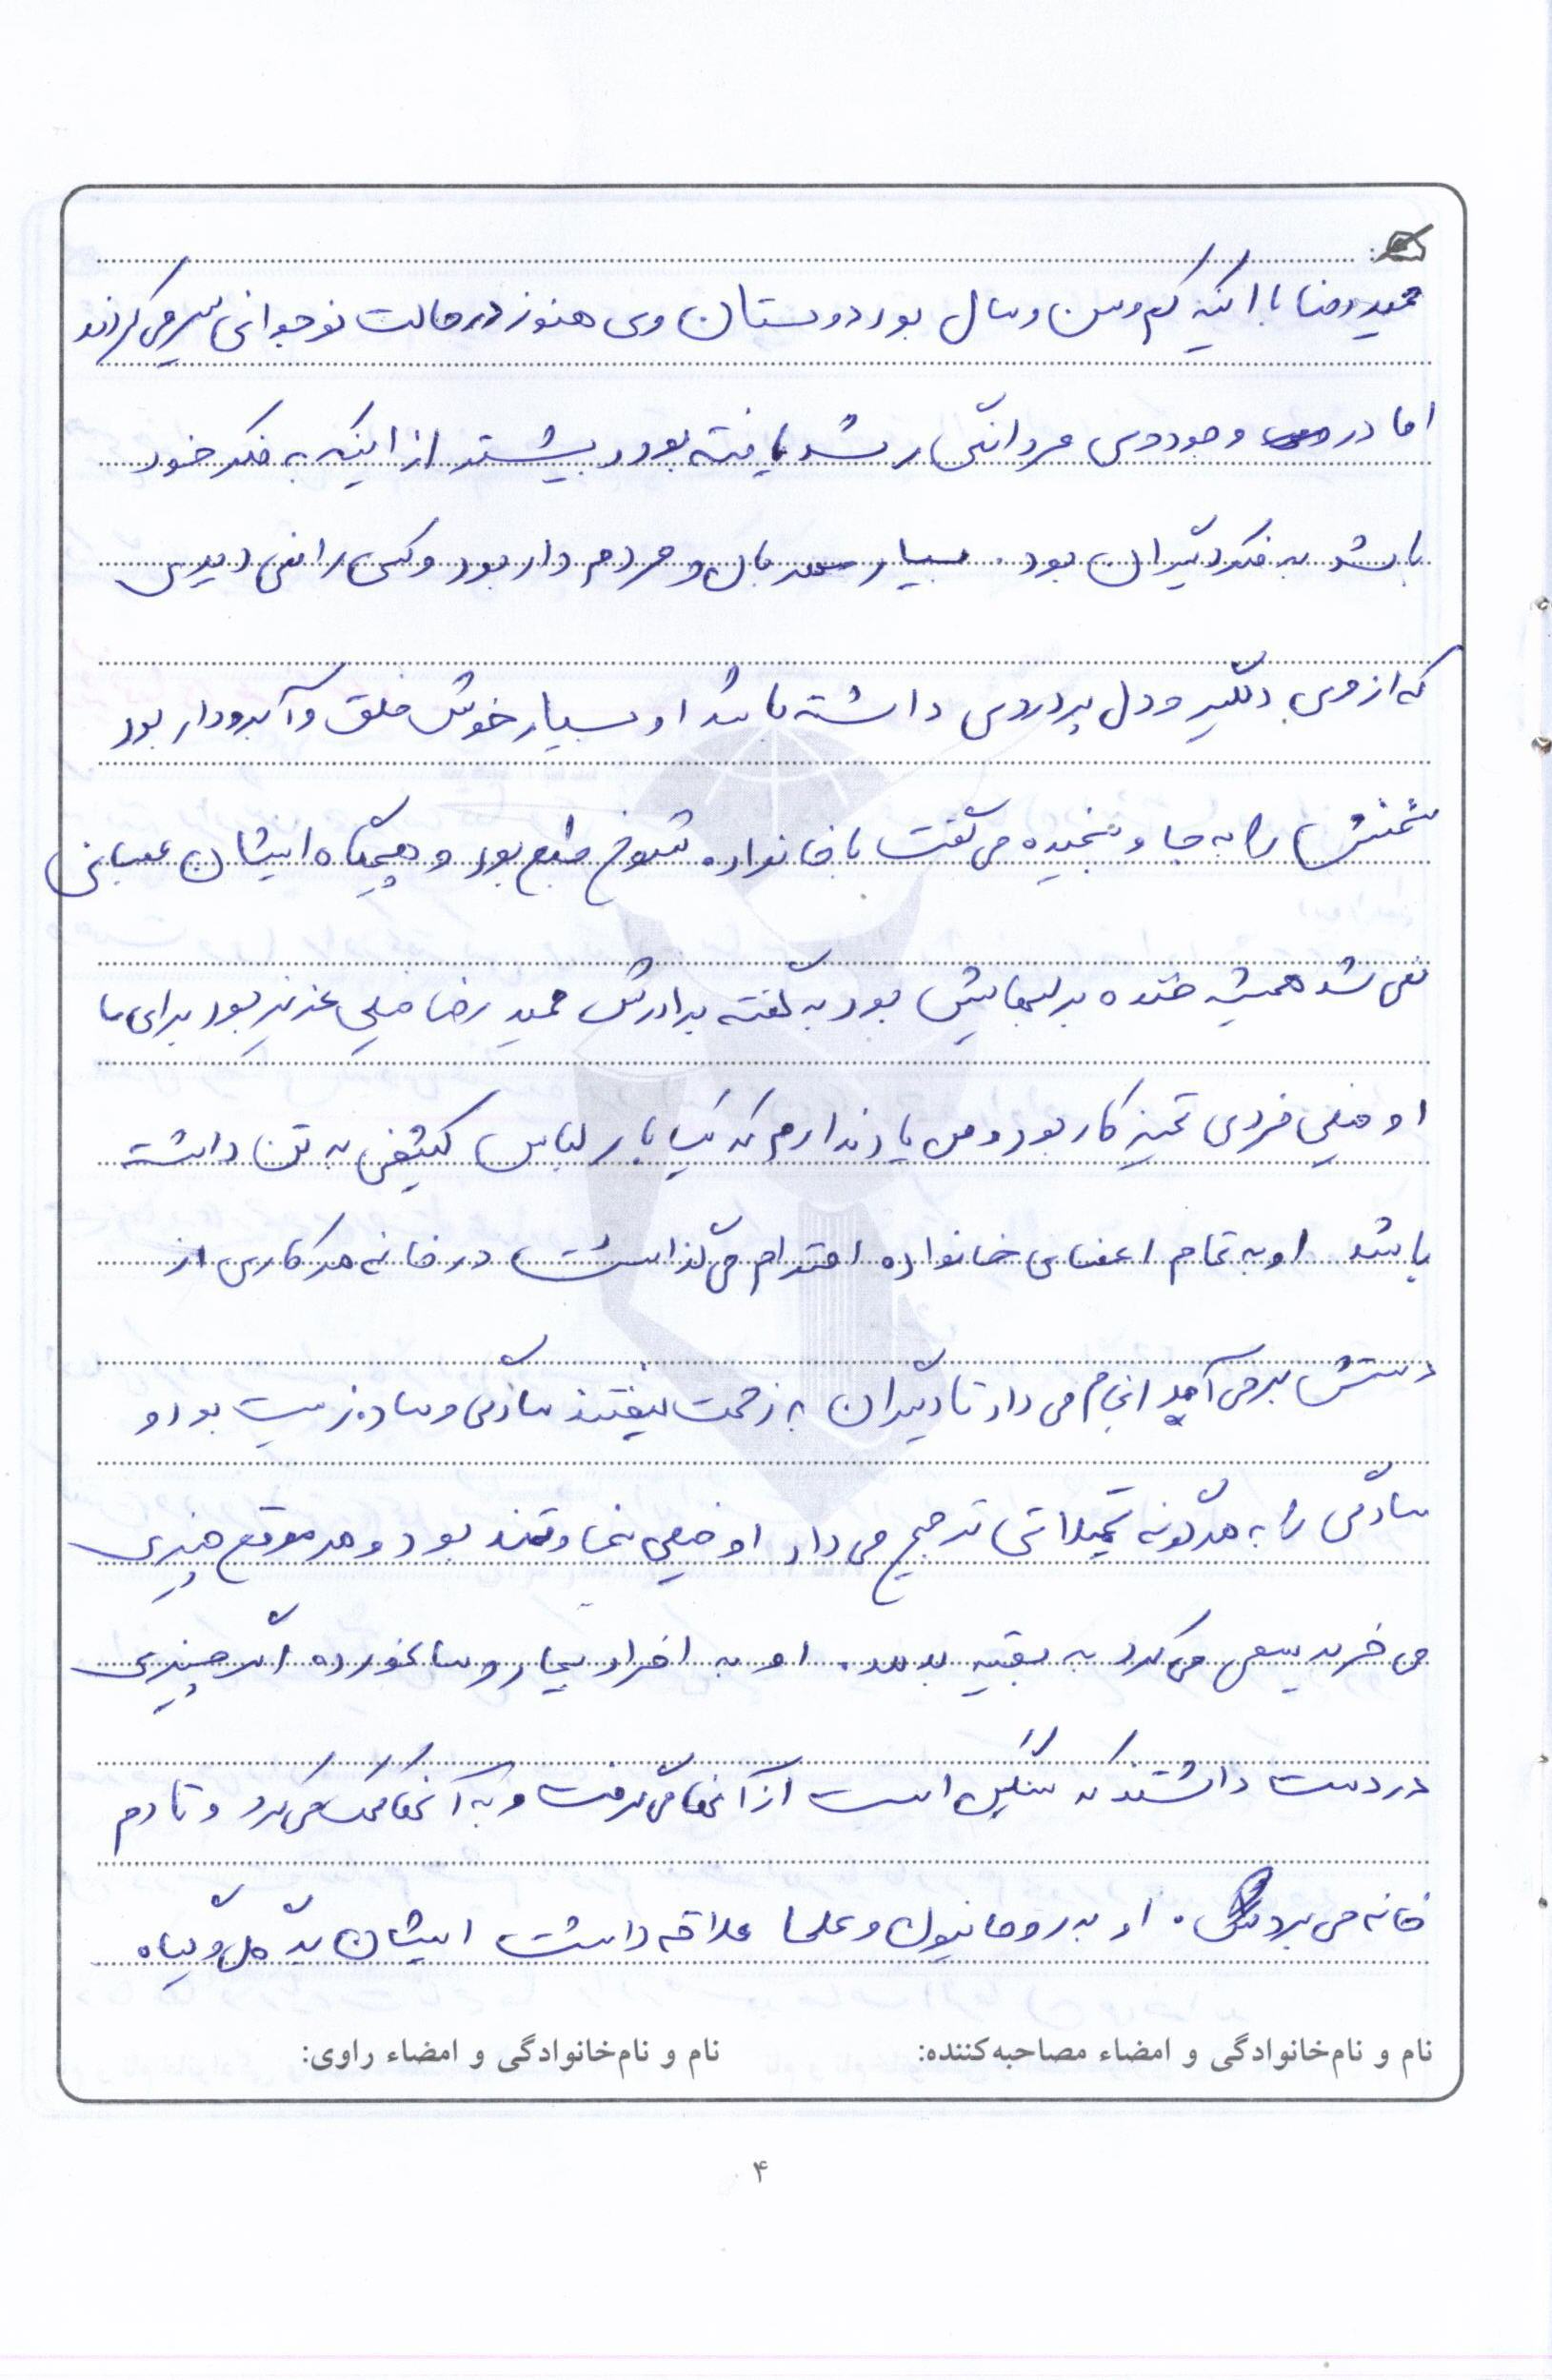 حمیدرضا با اینکه کم سن و سال بود دوستان وی هنوز در حالت نوجوانی سر می‌کردند
اما در وجود وی مردانگی رشد یافته بود و بیشتر از اینکه به فکر خود
باشد به فکر دیگران بود. بسیار مهربان و مردم دار بود و کسی را نمی دیدی
که از وی دلگیر و دل پر دردی داشته باشد او بسیار خوش خلق و آبرودار بود
سخنش را به جا و سنجیده می گفت با خانواده شوخ طبع بود و هیچگاه ایشان عصبانی
نمی شد همیشه خنده بر لبهایش بود به گفته برادرش حمید رضا خیلی عزیز بود برای ما
او خیلی فردی تمیز کار بود و من یاد ندارم که یکبار لباس کثیفی به تن داشته
باشد او به تمام اعضای خانواده احترام می گذاشت در خانه هر کاری از
دستش بر می آمد انجام می داد تا دیگران به زحمت نیفتند سادگی و ساده زیست بود و
سادگی را به هر گونه تجملاتی ترجیح می داد او خیلی سخاوتمند بود و هر موقع چیزی
می خرید سعی می کرد به بقیه بدهد. او به افراد بیمار و سالخورده اگر چیزی
در دست داشتند که سنگین است از آنها می گرفت و به آنها کمک می کرد و تا دم
خانه می برد. او به روحانیون و علما علاقه داشت ایشان به گل و گیاه
نام و نام‌خانوادگی و امضاء مصاحبه‌کننده: نام و نام‌خانوادگی و امضاء راوی:
۴